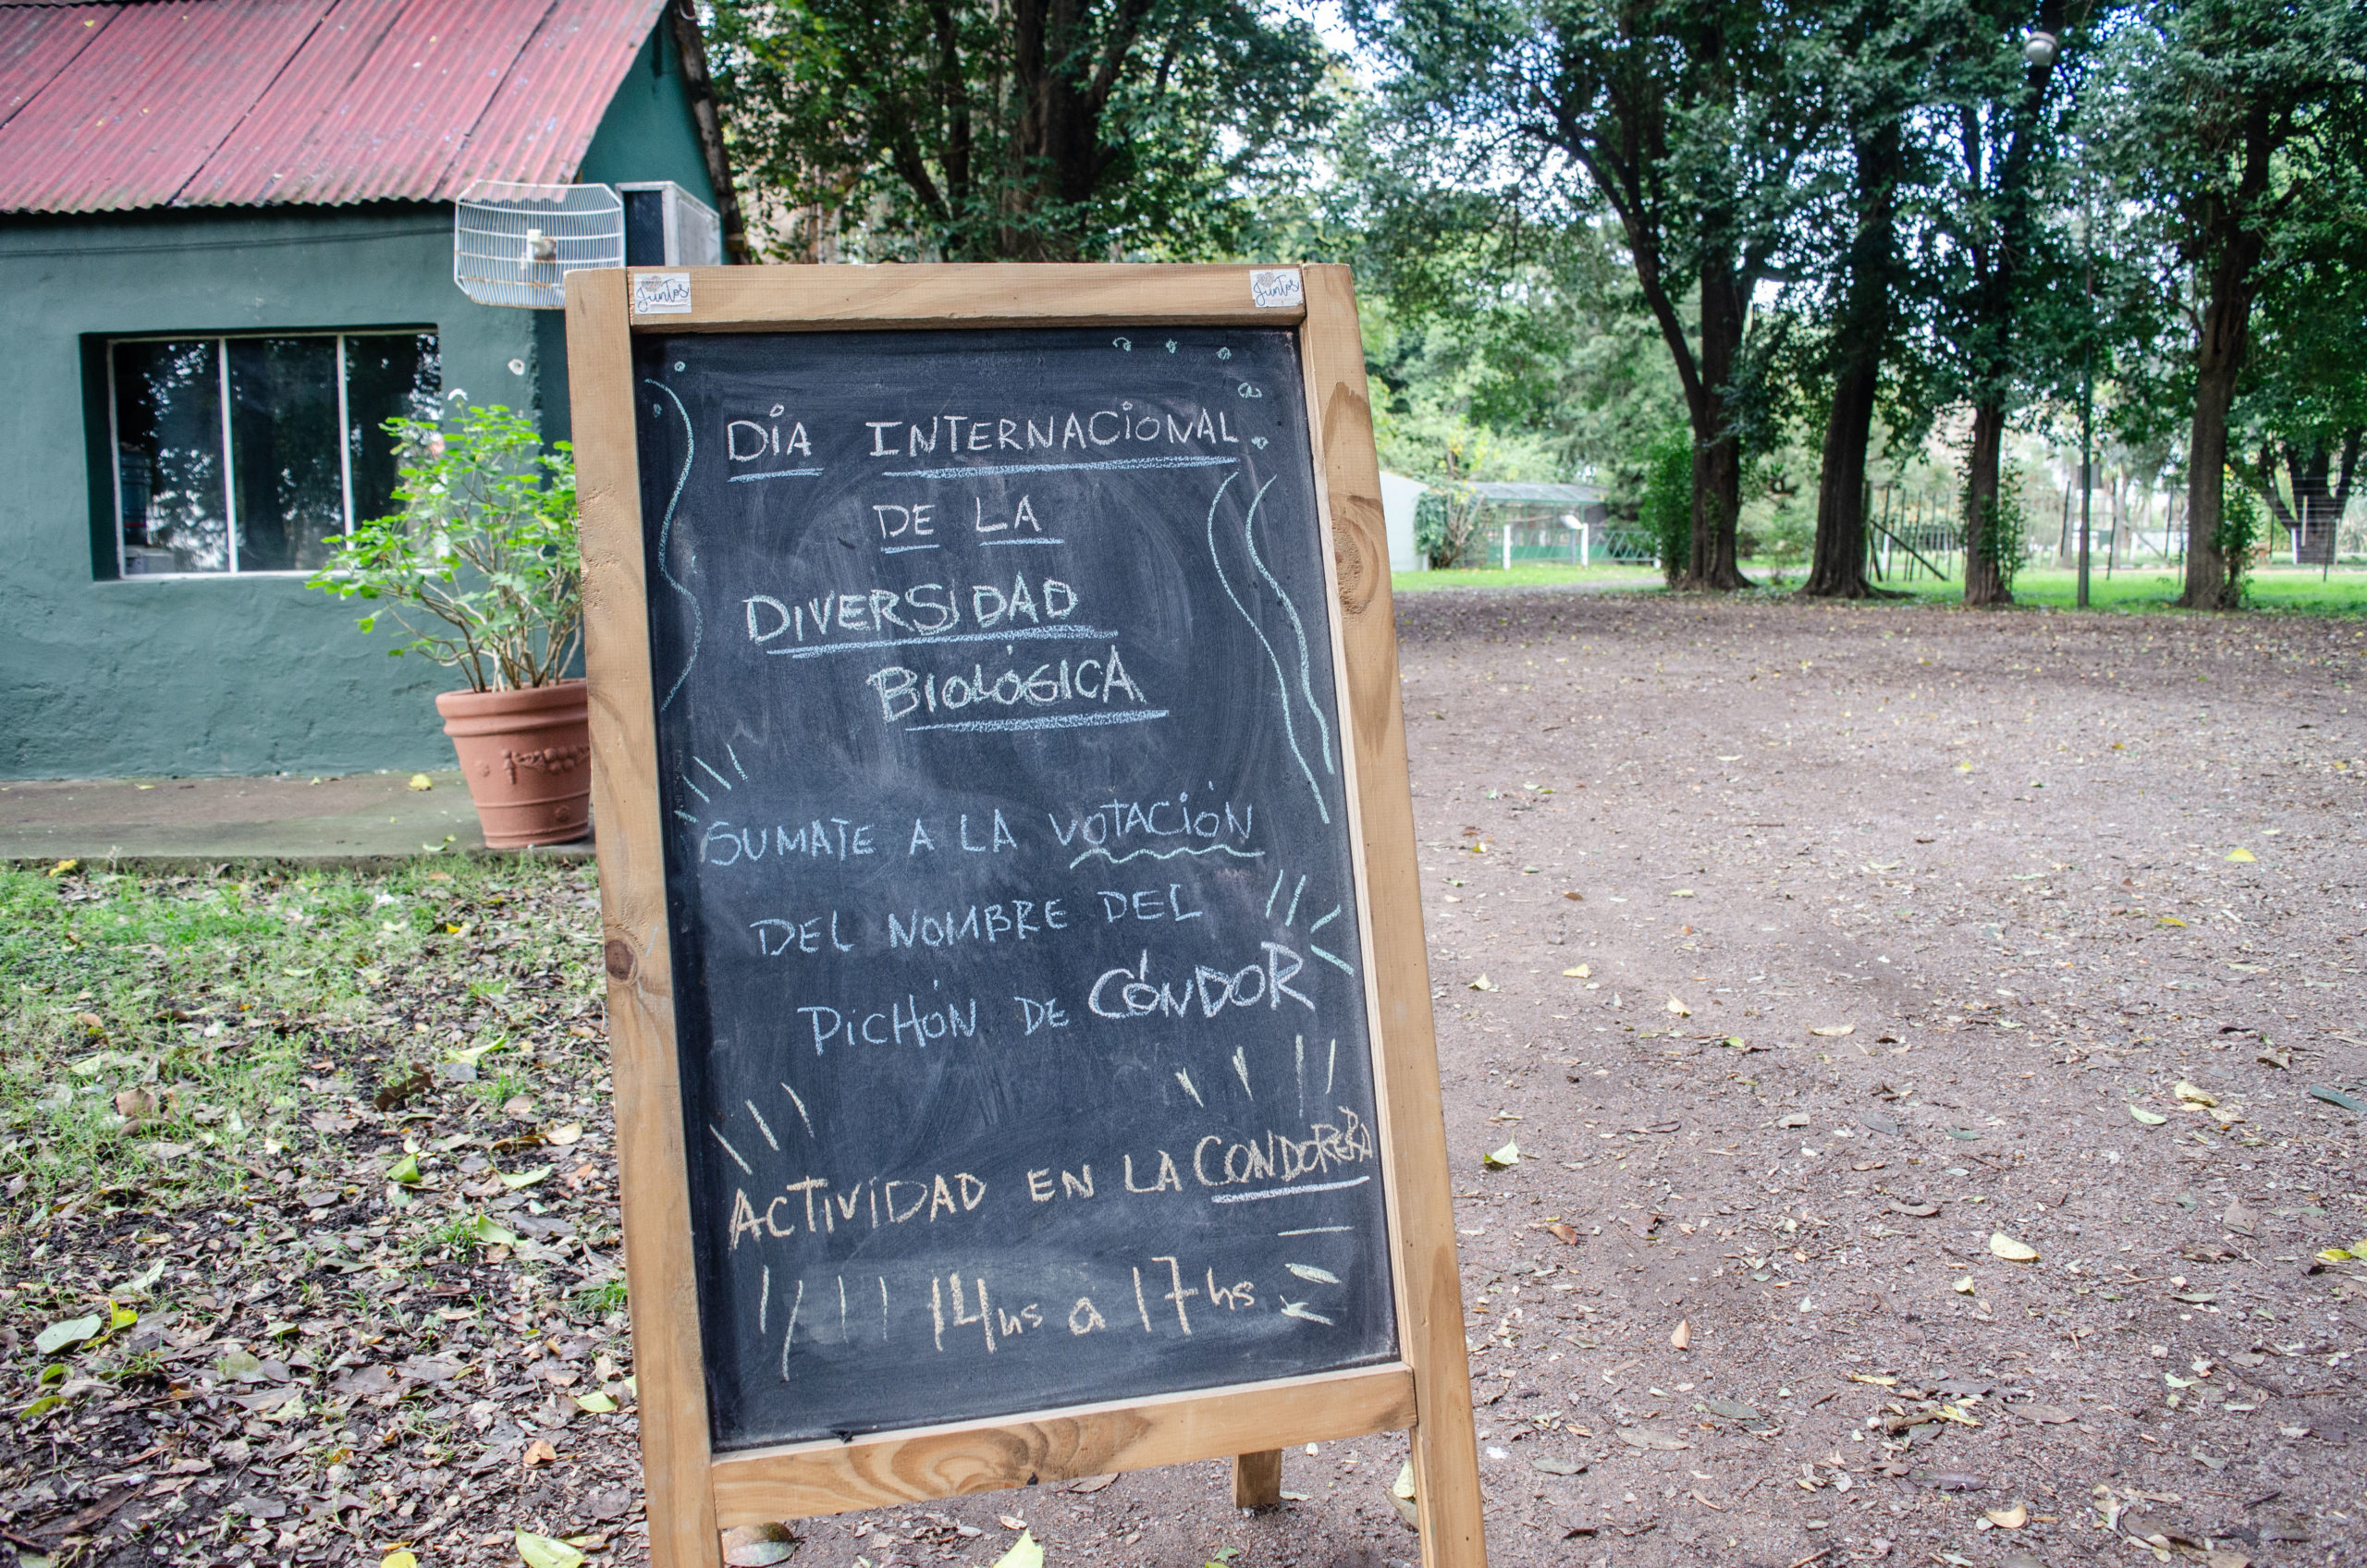 Juntos
Juntos
DÍA INTERNACIONAL
DE LA
DIVERSIDAD
BIOLÓGICA
SUMATE A LA VOTACIÓN
DEL NOMBRE DEL
PICHÓN DE CÓNDOR
ACTIVIDAD EN LA CONDORERA
14hs a 17hs